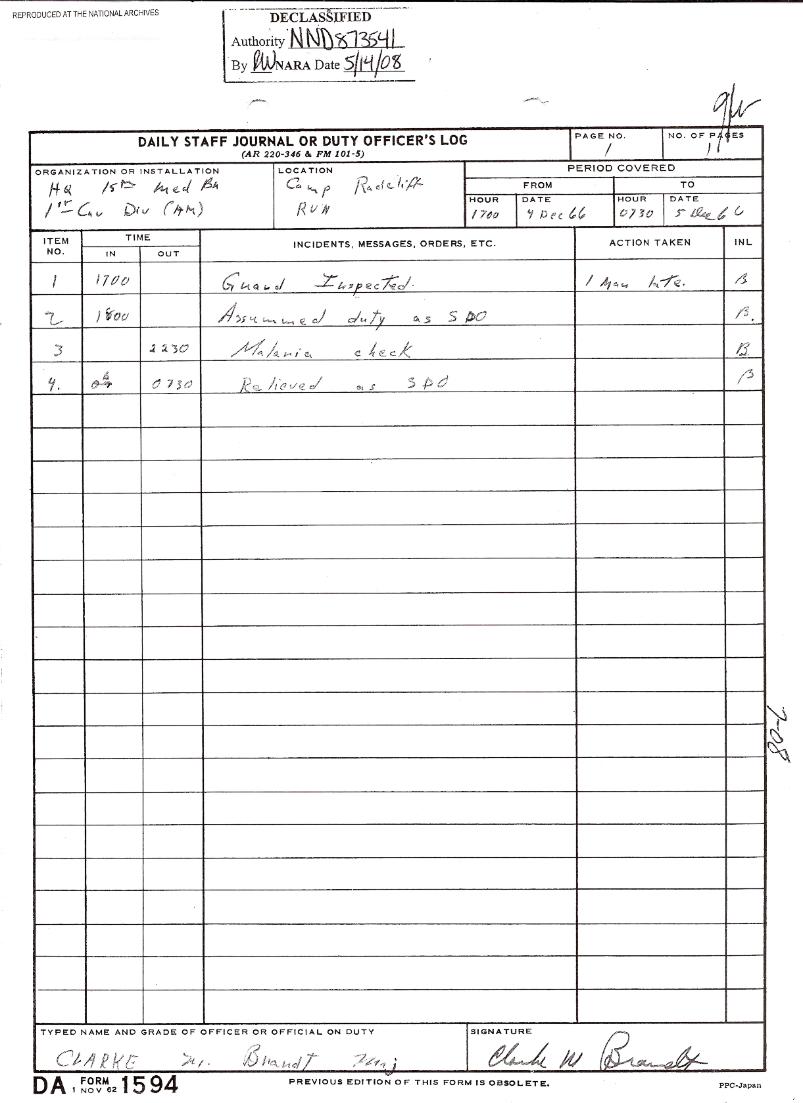 REPRODUCED AT THE NATIONAL ARCHIVES
DECLASSIFIED
Authority NND873541
By NARA Date 5/14/08
DAILY STAFF JOURNAL OR DUTY OFFICER'S LOG
(AR 220-346 & FM 101-5)
PAGE NO.
1
NO. OF PAGES
1
ORGANIZATION OR INSTALLATION
HQ 15th Med Bn
1st Cav Div (AM)
LOCATION
Camp Radcliff
RVN
PERIOD COVERED
FROM TO
HOUR DATE HOUR DATE
1700 4 Dec 66 0730 5 Dec 66
ITEM NO. TIME INCIDENTS, MESSAGES, ORDERS, ETC. ACTION TAKEN INL
IN OUT
1 1700 Guard Inspected. 1 Man late. B
2 1800 Assummed duty as SDO B.
3 2230 Malaria check B
4. 0730 Relieved as SDO B
7-08
TYPED NAME AND GRADE OF OFFICER OR OFFICIAL ON DUTY
CLARKE M. Brandt Maj
SIGNATURE
Clarke M Brandt
DA FORM 1594
1 NOV 62
PREVIOUS EDITION OF THIS FORM IS OBSOLETE.
PPC-Japan